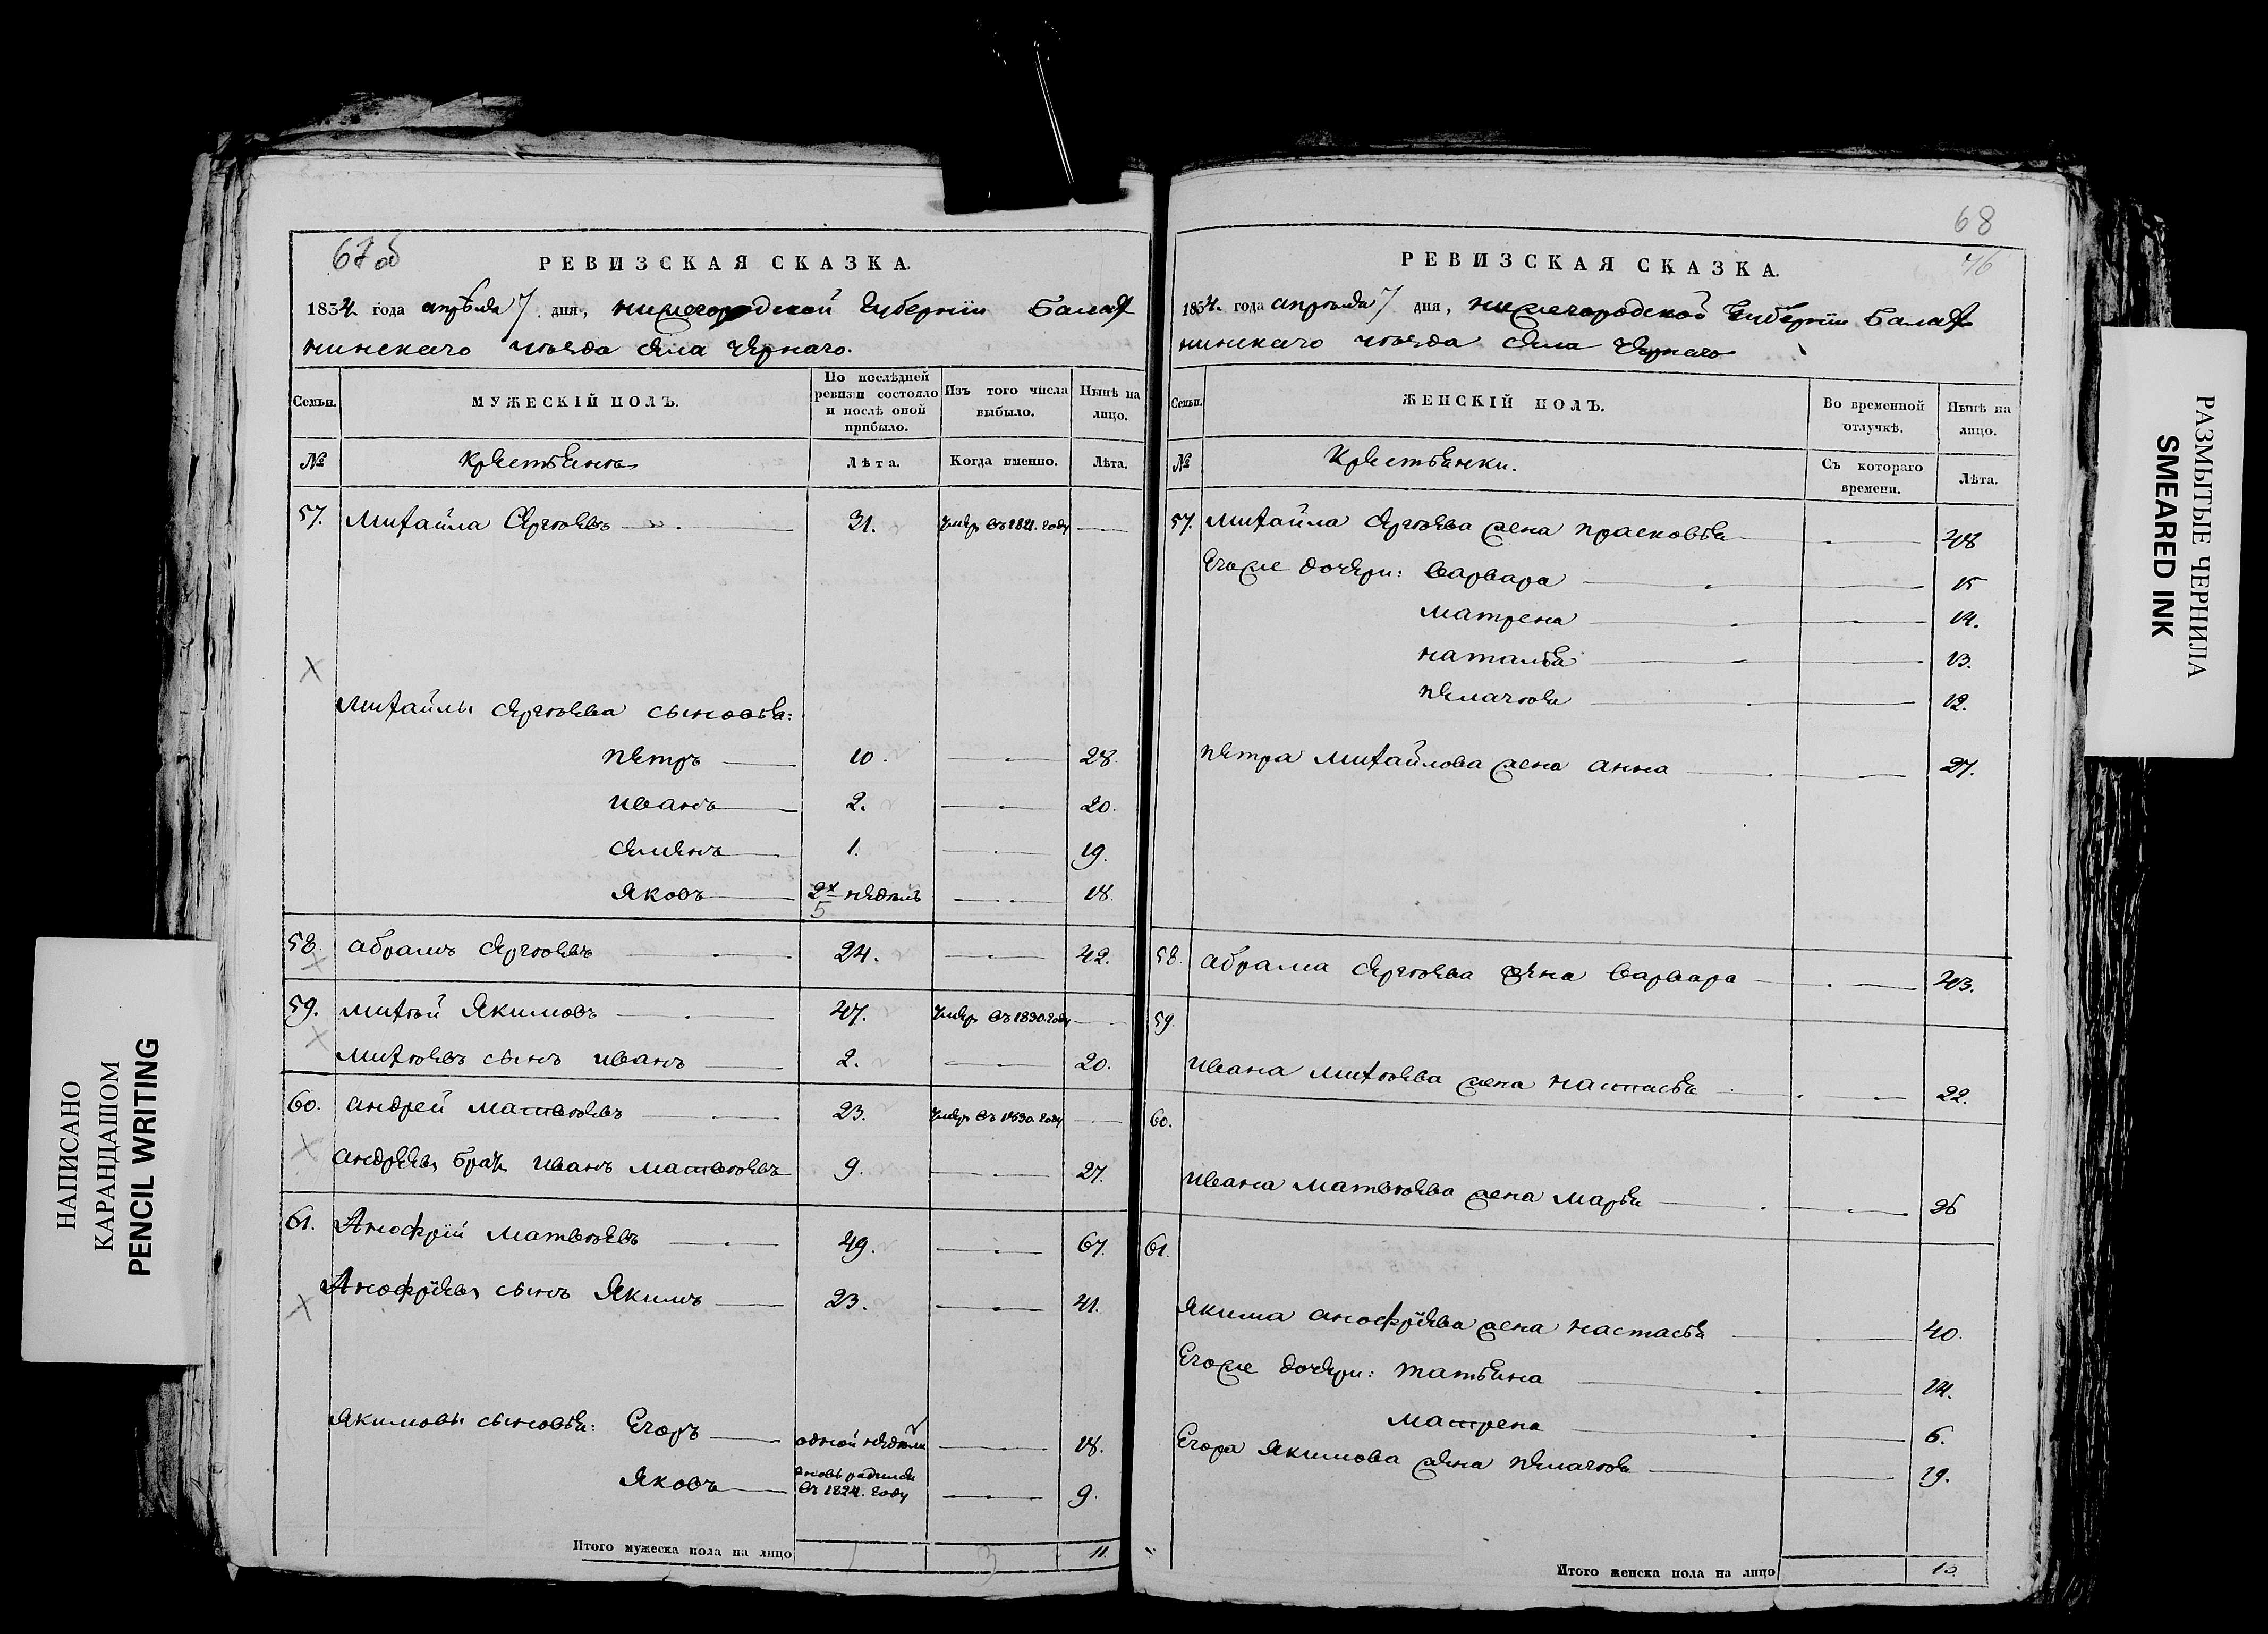 67об
РЕВИЗСКАЯ СКАЗКА.
1834 года апрѣля 7 дня, Нижегородской Губерніи Балах
нинскаго уѣзда села Чернаго.
Семьи.
МУЖЕСКІЙ ПОЛЪ.
По послѣдней ревизіи состояло и послѣ оной прибыло.
Изъ того числа выбыло.
Нынѣ на лицо.
№
Крестьянъ
Лѣта.
Когда именно.
Лѣта.
57. Михайла Сергѣевъ 31. умеръ въ 1821. году
Михайлы Сергѣева сыновья:
Петръ 10. 28.
Иванъ 2. 20.
Семенъ 1. 19.
Яковъ 2х недѣль 18.
5
58. Абрамъ Сергѣевъ 24. 42.
59. Михѣй Якимовъ 47. умеръ въ 1830. году
Михѣевъ сынъ Иванъ 2. 20.
60. Андрей Матвѣевъ 23. умеръ въ 1830. году
Андреевъ братъ Иванъ Матвѣевъ 9. 27.
61. Анофрій Матвѣевъ 49. 67.
Анофріевъ сынъ Якимъ 23. 41.
Якимовы сыновья: Егоръ одной недѣли 18.
Яковъ вновь родился въ 1824. году 9.
Итого мужеска пола на лицо 3 11.
68
76
РЕВИЗСКАЯ СКАЗКА.
1834. года апрѣля 7 дня, Нижегородской Губерніи Балах
нинскаго уѣзда села Чернаго
Семьи.
ЖЕНСКІЙ ПОЛЪ.
Во временной отлучкѣ.
Нынѣ на лицо.
№
Крестьянки.
Съ котораго времени.
Лѣта.
57. Михайла Сергѣева жена Прасковья 48
Егоже дочери: Варвара 15
Матрена 14.
Наталья 13.
Пелагѣя 12.
Петра Михайлова жена Анна 27.
58. Абрама Сергѣева жена Варвара 43.
59
Ивана Михѣева жена Настасья 22.
60.
Ивана Матвѣева жена Марья 26
61.
Якима Анофріева жена Настасья 40.
Егоже дочери: Татьяна 14.
Матрена 6.
Егора Якимова жена Пелагѣя 19.
Итого женска пола на лицо 13.
НАПИСАНО
КАРАНДАШОМ
PENCIL WRITING
РАЗМЫТЫЕ ЧЕРНИЛА
SMEARED INK